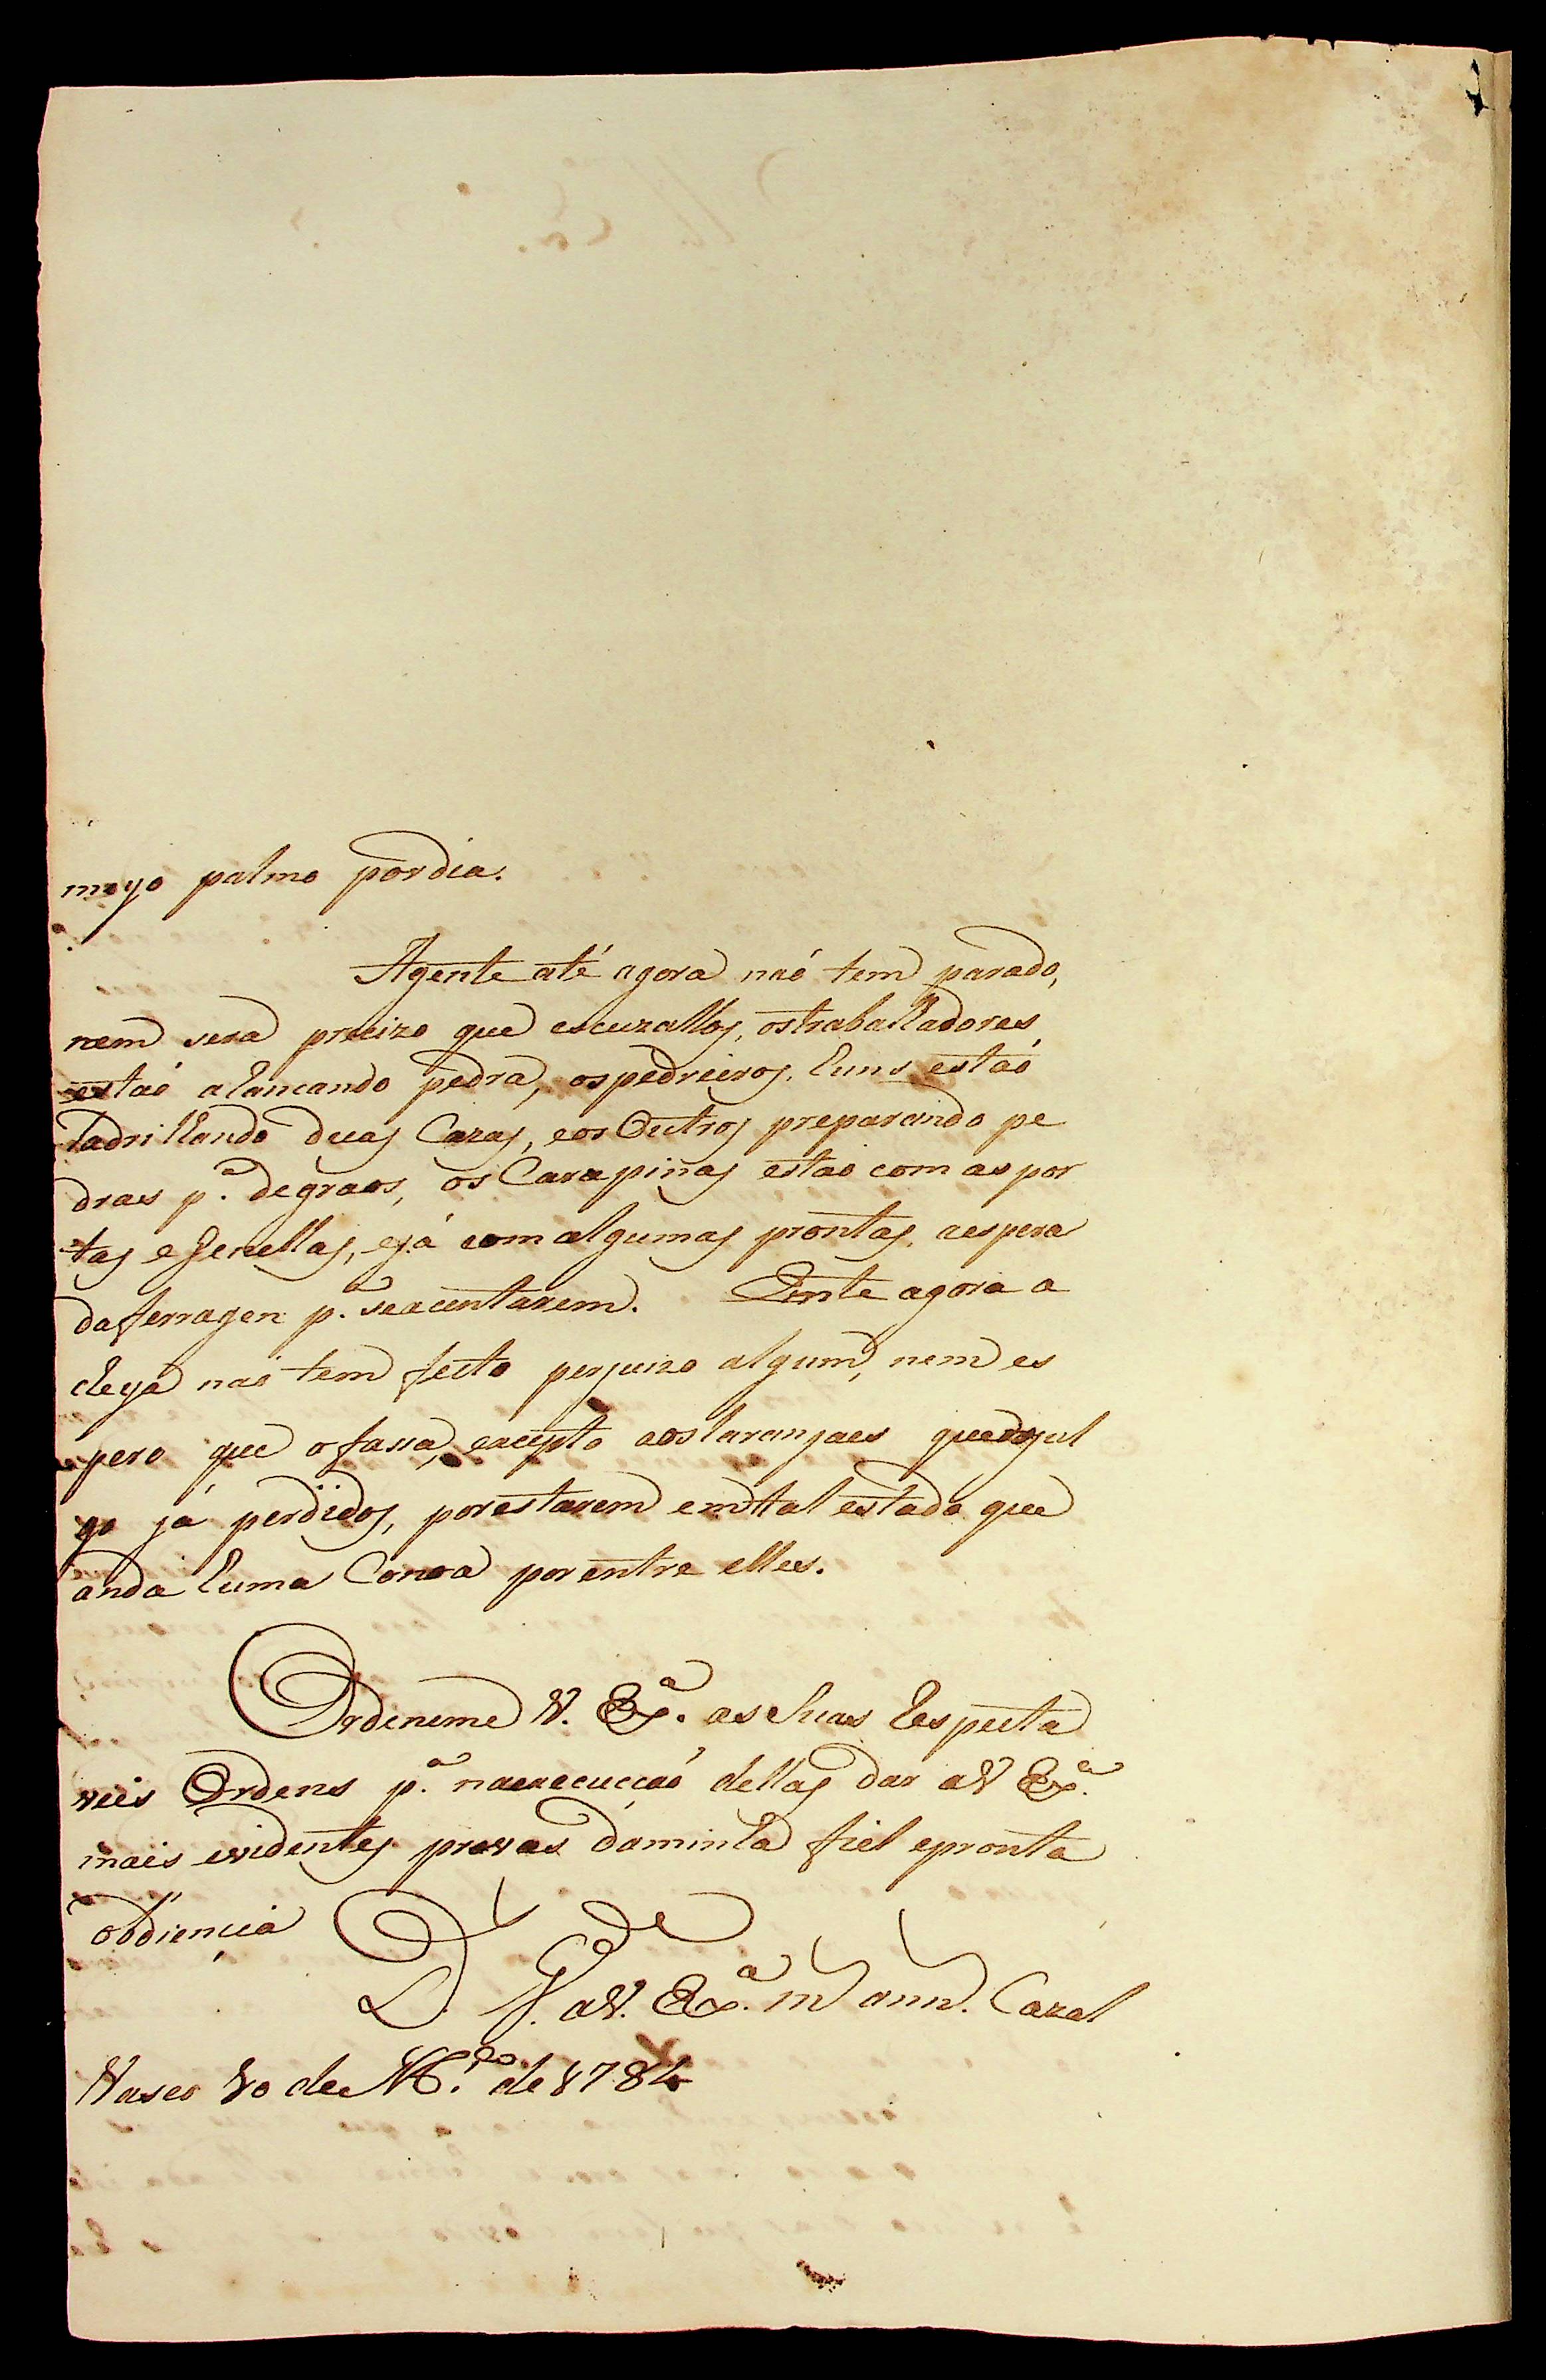 meyo palmo pordia.
Agente até agora naó tem parado,
nem sera precizo que escuzallos, ostrabalhadores
estaó alancando pedra, ospedreiros, huns estaó
Ladrilhando duas Cazas, eos Outros preparando pe
dras p.ª degraos, os Carapinas estao com as por
tas e Jenellas, ejá com algumas prontas, aespera
daferragen p.ª seacentarem. Emte agora a
cheya naó tem feito perjuizo algum, nem es
pero que ofassa, excepto aoslaranjaes queosjul
go já perdidos, porestarem emtal estado que
anda huma Conoa por entre elles.
Ordeneme V. Ex.ª as Suas Respeita
veis Ordens p.ª naexecuccaó dellas dar aV Ex.ª
mais evidentes provas daminha fiel epronta
obdiencia
D. G.de aV. Ex.ª m ann. Cazal
Vasco 10 de M.ço de 1784